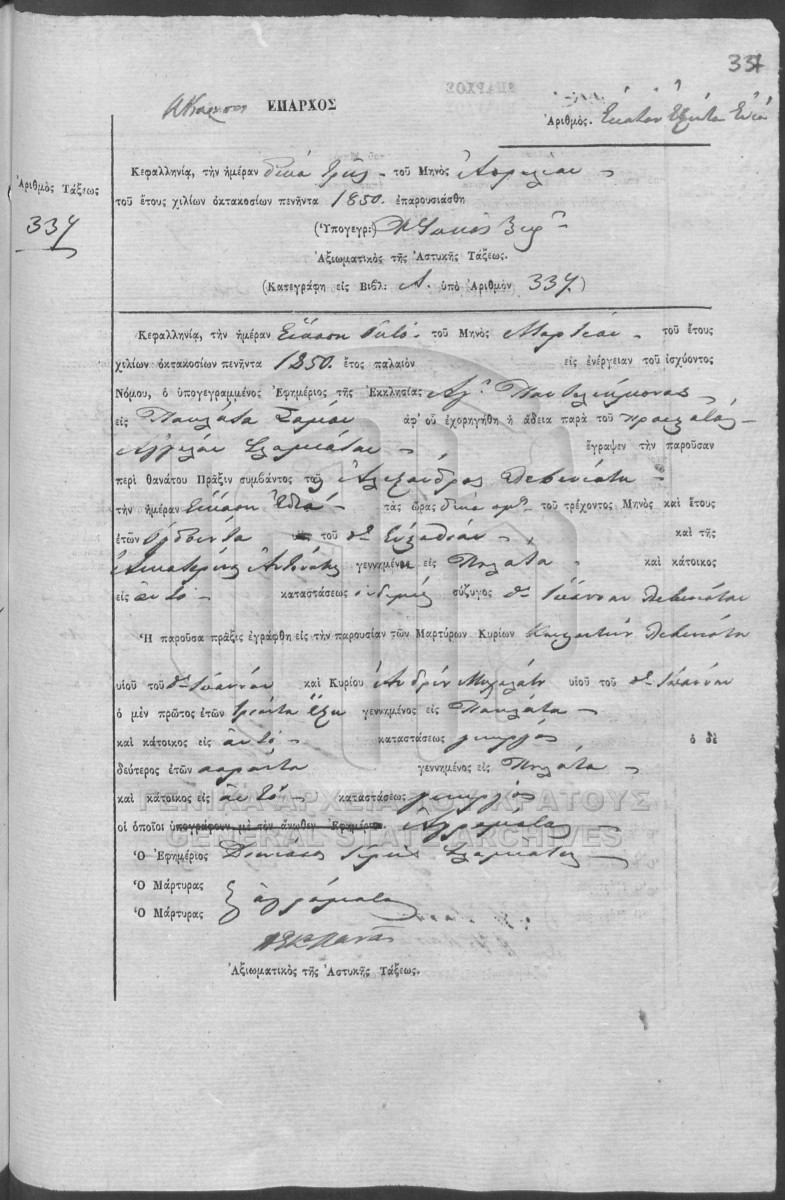 337
ΕΠΑΡΧΟΣ
Ἀριθμὸς. Ἑκατὸν Ἑξῆντα Ἐννέα
Ἀριθμὸς Τάξεως
337
Κεφαλληνίᾳ, τὴν ἡμέραν δέκα τρεῖς τοῦ Μηνὸς Ἀπριλίου
τοῦ ἔτους χιλίων ὀκτακοσίων πενῆντα 1850. ἐπαρουσιάσθη
(Ὑπογεγρ:)
Ἀξιωματικὸς τῆς Ἀστυκῆς Τάξεως.
(Κατεγράφη εἰς Βιβλ: Α. ὑπὸ Ἀριθμὸν 337.)
Κεφαλληνίᾳ, τὴν ἡμέραν Εἴκοση ὀκτὸ τοῦ Μηνὸς Μαρτίου τοῦ ἔτους
χιλίων ὀκτακοσίων πενῆντα 1850. ἔτος παλαιὸν εἰς ἐνέργειαν τοῦ ἰσχύοντος
Νόμου, ὁ ὑπογεγραμμένος Ἐφημέριος τῆς Ἐκκλησίας Ἁγ. Παντελεήμονας
εἰς Πουλάτα Σάμου ἀφ' οὗ ἐχορηγήθη ἡ ἄδεια παρὰ τοῦ
ἔγραψεν τὴν παροῦσαν
περὶ θανάτου Πρᾶξιν συμβάντος τοῦ Ἀλεξάνδρας Λεβενιότη
τὴν ἡμέραν Εἴκοση τὰς ὥρας δέκα τοῦ τρέχοντος Μηνὸς καὶ ἔτους
ἐτῶν Ὀγδοῆντα τοῦ καὶ τῆς
Αἰκατερίνης γεννημένη εἰς Πουλάτα καὶ κάτοικος
εἰς αὐτὸ καταστάσεως οὐδεμίας σύζυγος Ἰωάννου Λεβενιότου
Ἡ παροῦσα πράξις ἐγράφθη εἰς τὴν παρουσίαν τῶν Μαρτύρων Κυρίων Λεβενιότη
υἱοῦ τοῦ Ἰωάννου καὶ Κυρίου Ἀνδρέου υἱοῦ τοῦ Ἰωάννου
ὁ μὲν πρῶτος ἐτῶν τριάντα ἕξη γεννημένος εἰς Πουλάτα
καὶ κάτοικος εἰς αὐτὸ καταστάσεως γεωργὸς ὁ δὲ
δεύτερος ἐτῶν σαράντα γεννημένος εἰς Πουλάτα
καὶ κάτοικος εἰς αὐτὸ καταστάσεως γεωργὸς
οἱ ὁποῖοι ὑπογράφουν μὲ τὸν ἄνωθεν Ἐφημέριον Ἀγράματοι
Ὁ Ἐφημέριος
Ὁ Μάρτυρας
Ὁ Μάρτυρας ἀγράματοι
Ἀξιωματικὸς τῆς Ἀστυκῆς Τάξεως.
ΓΕΝΙΚΑ ΑΡΧΕΙΑ ΤΟΥ ΚΡΑΤΟΥΣ
GENERAL STATE ARCHIVES